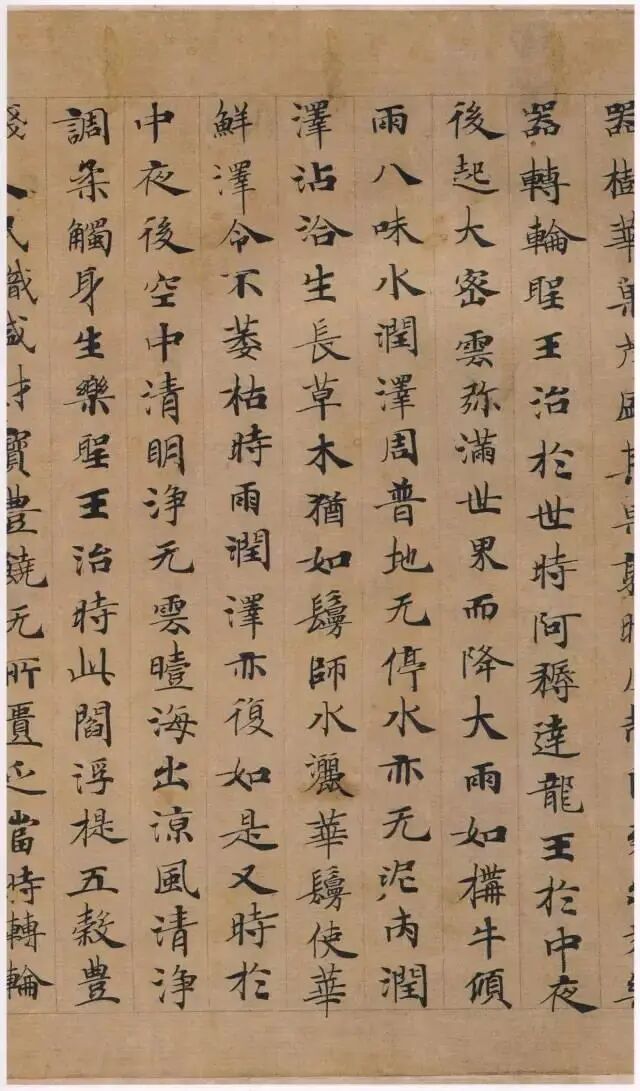 器樹華菓茂盛其
器轉輪聖王治於世時阿耨達龍王於中夜
後起大密雲弥滿世界而降大雨如搆牛傾
雨八味水潤澤周普地无停水亦无泥潤
澤沾洽生長草木猶如鬘師水灑華鬘使華
鮮澤令不萎枯時雨潤澤亦復如是又時於
中夜後空中清明淨无雲曀海出涼風清淨
調柔觸身生樂聖王治時此閻浮提五穀豊
賤人民熾盛財寶豊饒无所匱乏當時轉輪